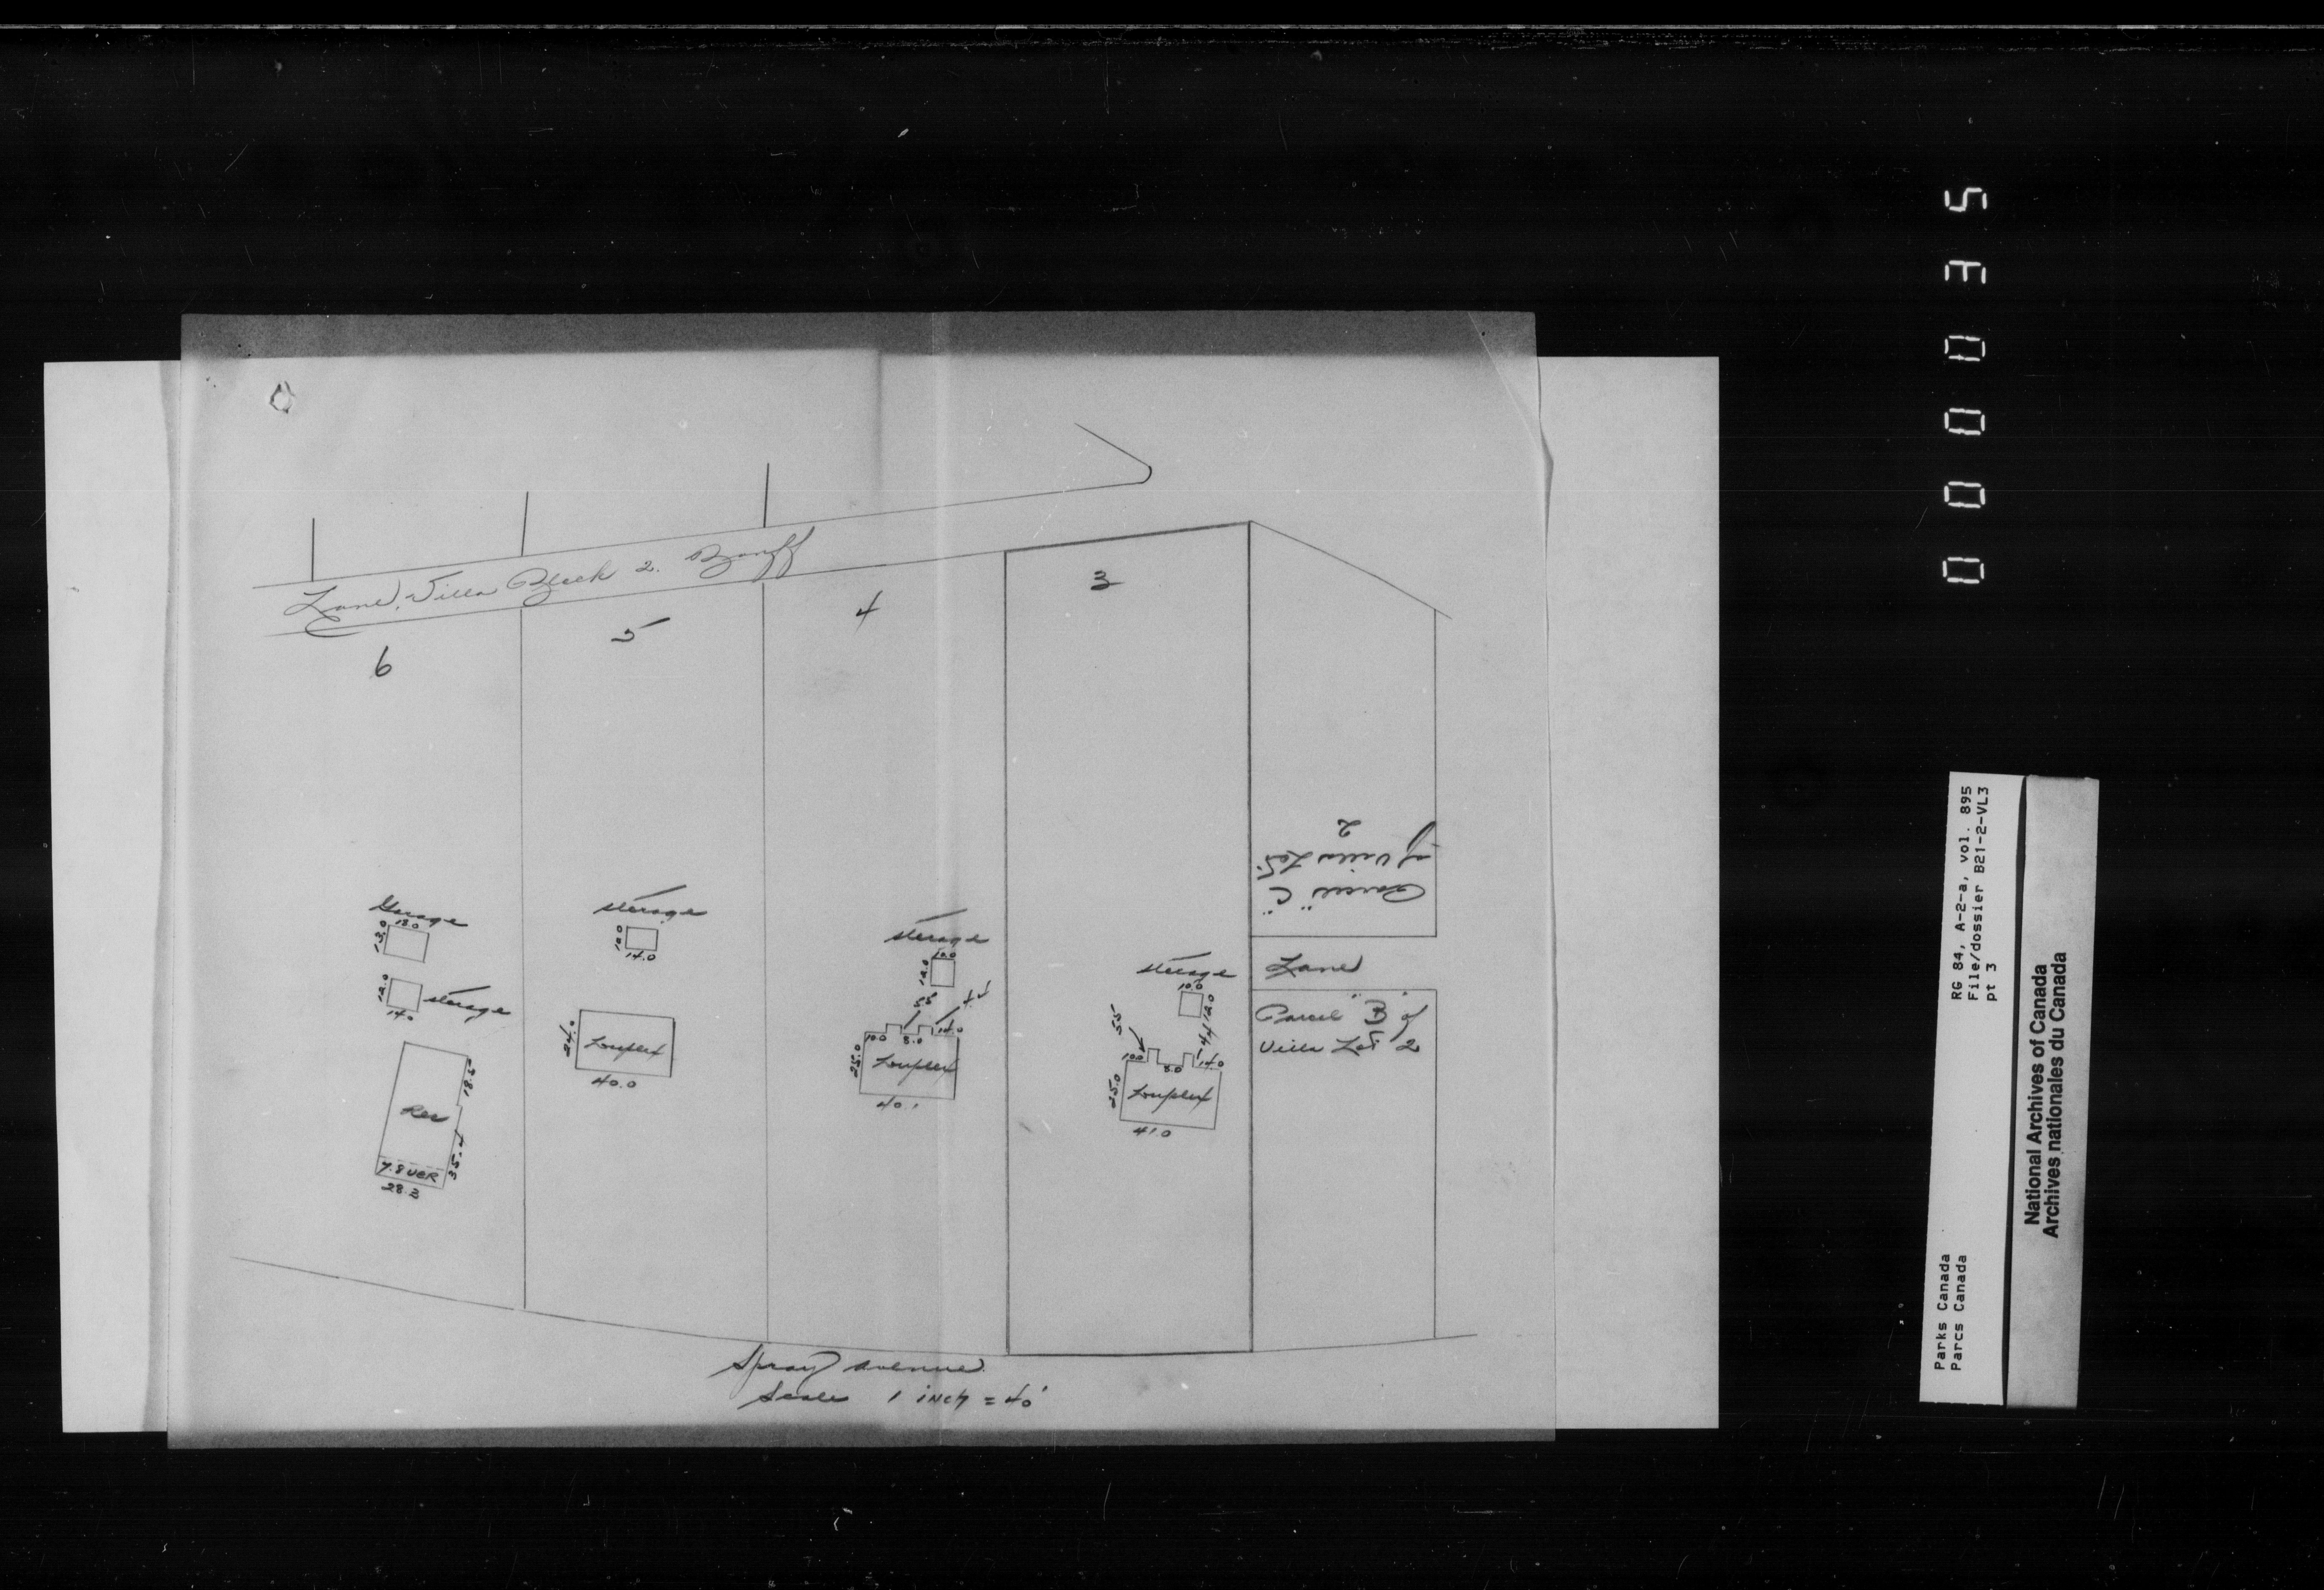 Lane, Villa Block 2. Banff
6
5
4
3
Parcel "C"
of Villa Lot
2
Lane
Parcel "B" of
Villa Lot 2
Garage
13.0
13.0
12.0
14.0
storage
Res
18.5
35.4
7.8 VER
28.3
storage
10.0
14.0
24.0
Duplex
40.0
storage
10.0
12.0
5.5
4.4
10.0
8.0
14.0
25.0
Duplex
40.1
storage
10.0
12.0
5.5
4.4
10.0
8.0
14.0
25.0
Duplex
41.0
Spray Avenue
Scale 1 inch = 40'
000035
RG 84, A-2-a, vol. 895
File/dossier B21-2-VL3
pt 3
Parks Canada
Parcs Canada
National Archives of Canada
Archives nationales du Canada